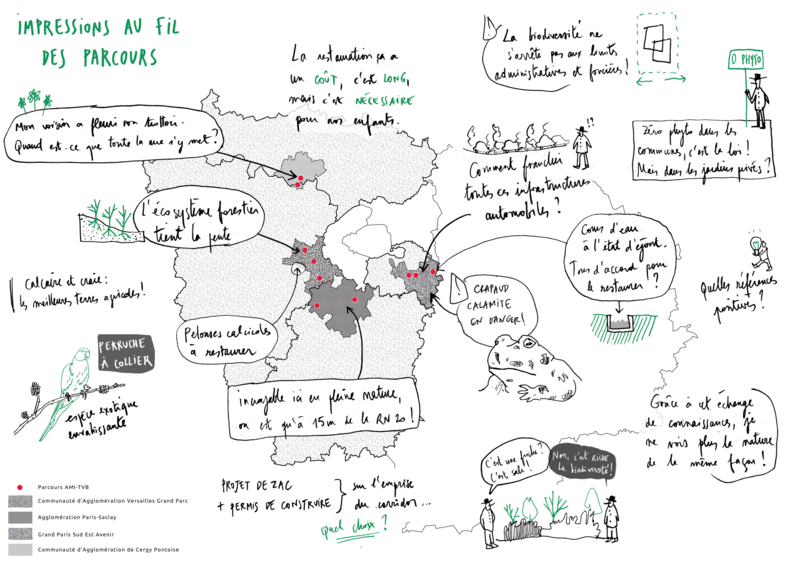 IMPRESSIONS AU FIL
DES PARCOURS
La restauration ça a
un COÛT, c'est LONG,
mais c'est NÉCESSAIRE
pour nos enfants.
La biodiversité ne
s'arrête pas aux limites
administratives et foncières !
0 PHYTO
Zéro phyto dans les
communes, c'est la loi !
Mais dans les jardins privés ?
Mon voisin a fleuri son trottoir.
Quand est-ce que toute la rue s'y met ?
!?
Comment franchir
toutes ces infrastructures
automobiles ?
L'écosystème forestier
tient la pente
Cours d'eau
à l'état d'égout.
Tous d'accord pour
le restaurer !?
Quelles références
positives ?
Calcaire et craie :
les meilleures terres agricoles !
CRAPAUD
CALAMITE
EN DANGER !
Pelouses calcicoles
à restaurer
PERRUCHE
À COLLIER
espèce exotique
envahissante
incroyable ici en pleine nature,
on est qu'à 15m de la RN 20 !
Grâce à cet échange
de connaissances, je
ne vois plus la nature
de la même façon !
C'est une friche ?
C'est sale !
Non, c'est RICHE
la biodiversité !
PROJET DE ZAC
+ PERMIS DE CONSTRUIRE
sur l'emprise
du corridor...
quel choix ?
Parcours AMI-TVB
Communauté d'Agglomération Versailles Grand Parc
Agglomération Paris-Saclay
Grand Paris Sud Est Avenir
Communauté d'Agglomération de Cergy Pontoise